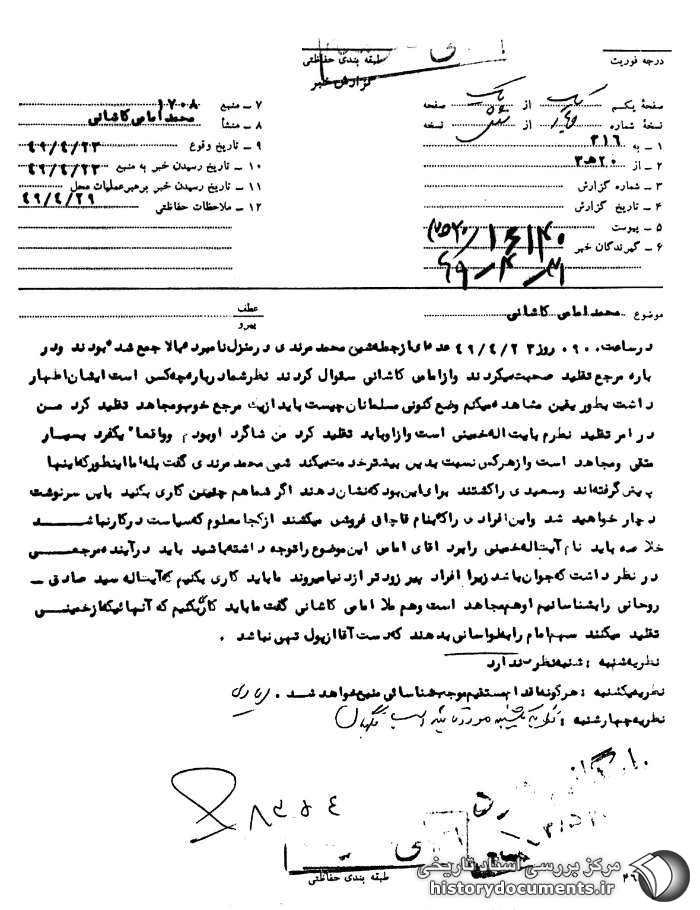 طبقه بندی حفاظتی
درجه فوریت
گزارش خبر
صفحهٔ یکم یک از یک صفحه
نسخهٔ شماره از نسخه
۱ ــ به ۳۱۶
۲ ــ از ۲۰ه۳
۳ ــ شماره گزارش
۴ ــ تاریخ گزارش
۵ ــ پیوست
۶ ــ گیرندگان خبر
۷ ــ منبع ۱۷۰۸
۸ ــ منشأ محمد امامی کاشانی
۹ ــ تاریخ وقوع ۴۹/۴/۲۳
۱۰ ــ تاریخ رسیدن خبر به منبع ۴۹/۴/۲۳
۱۱ ــ تاریخ رسیدن خبر برهبر عملیات محل ۴۹/۴/۲۹
۱۲ ــ ملاحظات حفاظتی
موضوع محمد امامی کاشانی
عطف
پیرو
در ساعت ۰۹۰۰ روز ۴۹/۴/۲۳ عده ای از جمله شیخ محمد مرندی در منزل نامبرده بالا جمع شده بودند و در
باره مرجع تقلید صحبت میکردند و از امامی کاشانی سئوال کردند نظر شما درباره چه کس است ایشان اظهار
داشت بطور یقین مشاهده میکنم وضع کنونی مسلمانان چیست باید از یک مرجع خوب و مجاهد تقلید کرد من
در امر تقلید نظرم بایت اله خمینی است و از او باید تقلید کرد من شاگرد او بودم و واقعا" یکفرد بسیار
متقی و مجاهد است و از هر کس نسبت بدین بیشتر خدمت میکند شیخ محمد مرندی گفت بله اما اینطور که اینها
پیش گرفته اند و سعیدی را کشتند برای این بود که نشان دهند اگر شما هم چنین کاری بکنید باین سرنوشت
دچار خواهید شد و این افرادی را که بنام قاچاق فروشی میکشند از کجا معلوم که سیاست در کار نباشد
خلاصه باید نام آیت اله خمینی را برد آقای امامی این موضوع را توجه داشته باشید باید در آینده مرجعی
در نظر داشت که جوان باشد زیرا افراد پیر زودتر از دنیا میروند ما باید کاری بکنیم که آیت اله سید صادق ــ
روحانی را بشناسانیم او هم مجاهد است و هم ملا امامی کاشانی گفت ما باید کاری بکنیم که آنهائیکه از خمینی
تقلید میکنند سهم امام را به لواسانی بدهند که دست آقا از پول تهی نباشد .
نظریه شنبه : شنبه نظری ندارد
نظریه یکشنبه : هرگونه اقدام مستقیم موجب شناسائی منبع خواهد شد .
نظریه چهارشنبه :
۸۳۵۴
طبقه بندی حفاظتی
مرکز بررسی اسناد تاریخی
historydocuments.ir